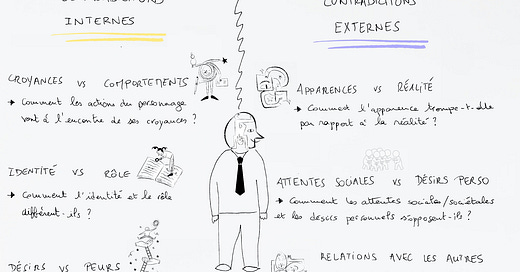 INTERNES
CROYANCES VS COMPORTEMENTS
→ Comment les actions du personnage
vont à l'encontre de ses croyances ?
IDENTITÉ VS RÔLE
→ Comment l'identité et le rôle
diffèrent-ils ?
DÉSIRS VS PEURS
CONTRADICTIONS
EXTERNES
APPARENCES VS RÉALITÉ
→ Comment l'apparence trompe-t-elle
par rapport à la réalité ?
ATTENTES SOCIALES VS DÉSIRS PERSO
→ Comment les attentes sociales/sociétales
et les désirs personnels s'opposent-ils ?
RELATIONS AVEC LES AUTRES